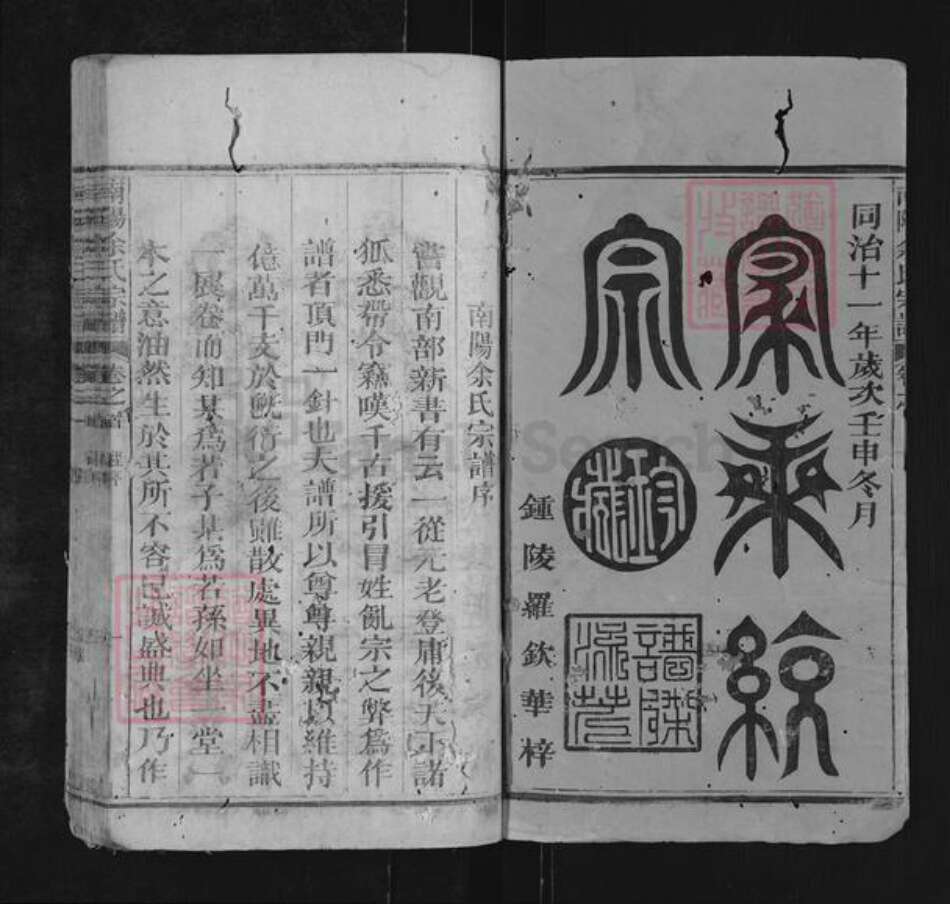 同治十一年歲次壬申冬月
家乘統
宗
珍藏
譜牒流芳
鍾陵羅欽華梓
南陽余氏宗譜序
嘗觀南部新書有云一從元老登庸後天下諸
狐悉帶令竊嘆千古援引冒姓亂宗之弊為作
譜者頂門一針也夫譜所以尊尊親親以維持
億萬千支於既衍之後雖散處異地不盡相識
一展卷而知某為若子某為若孫如坐一堂一
本之意油然生於其所不容已誠盛典也乃作
南陽余氏宗譜 卷之首